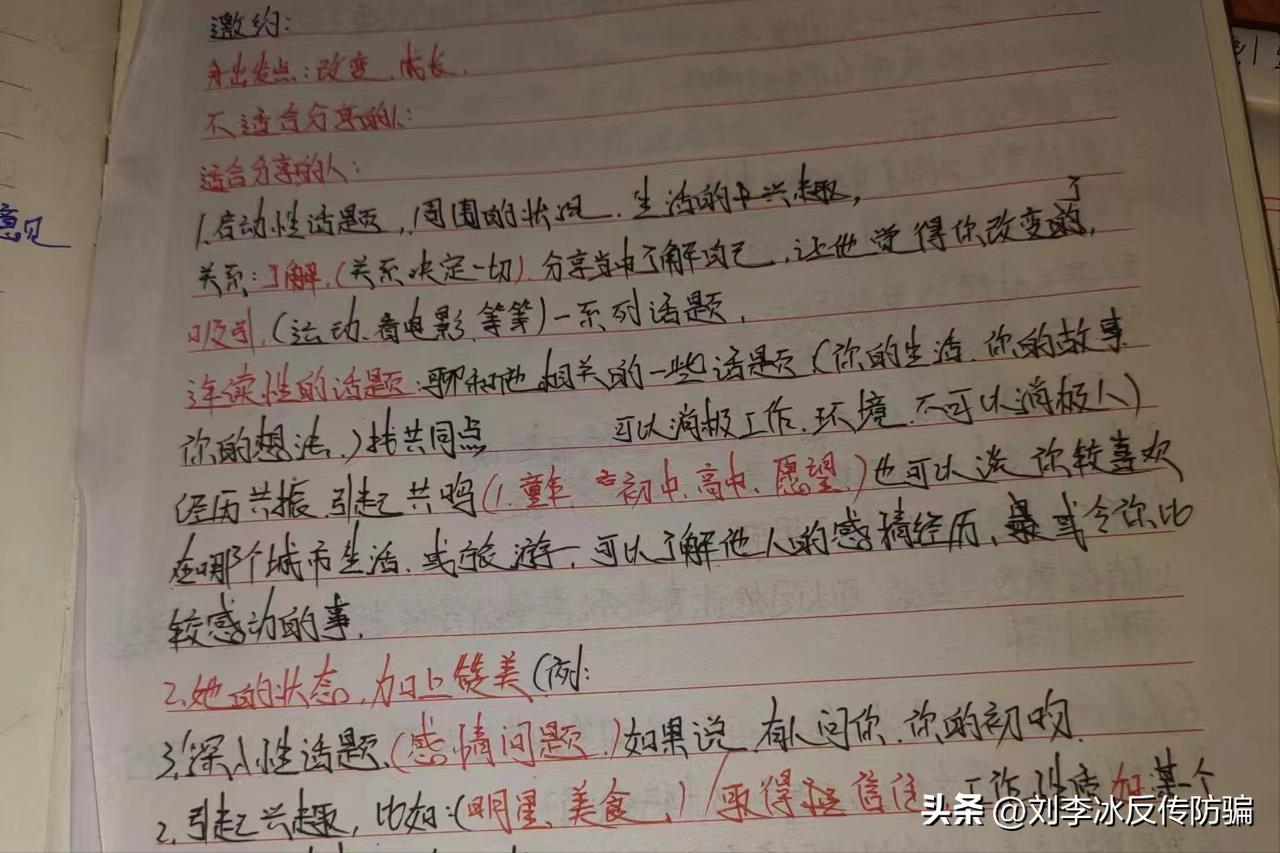 邀约:
出发点:改变、成长.
不适合分享的人:
适合分享的人:
1.启动性话题,周围的状况、生活的中兴趣,
了
关系:了解,(关系决定一切)分享当中了解自己,让他觉得你改变的,
吸引,(运动、看电影、等等)一系列话题,
连续性的话题:聊和他相关的一些话题(你的生活、你的故事
你的想法、)找共同点 可以消极工作、环境、不可以消极人)
意见
经历共振、引起共鸣(1.童年、初中、高中、愿望、)也可以谈你较喜欢
在哪个城市生活、或旅游、可以了解他人的感情经历、或令你比
较感动的事.
2.她的状态、加上赞美(例:
3.深入性话题、(感情问题、)如果说、有人问你、你的初吻
2.引起兴趣,比如:(明星、美食、)取得信任、工作性质如某个
头条 @刘李冰反传防骗